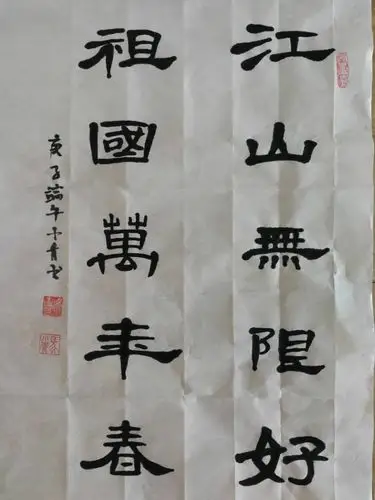 江山無限好
祖國萬年春
庚子端午小青书